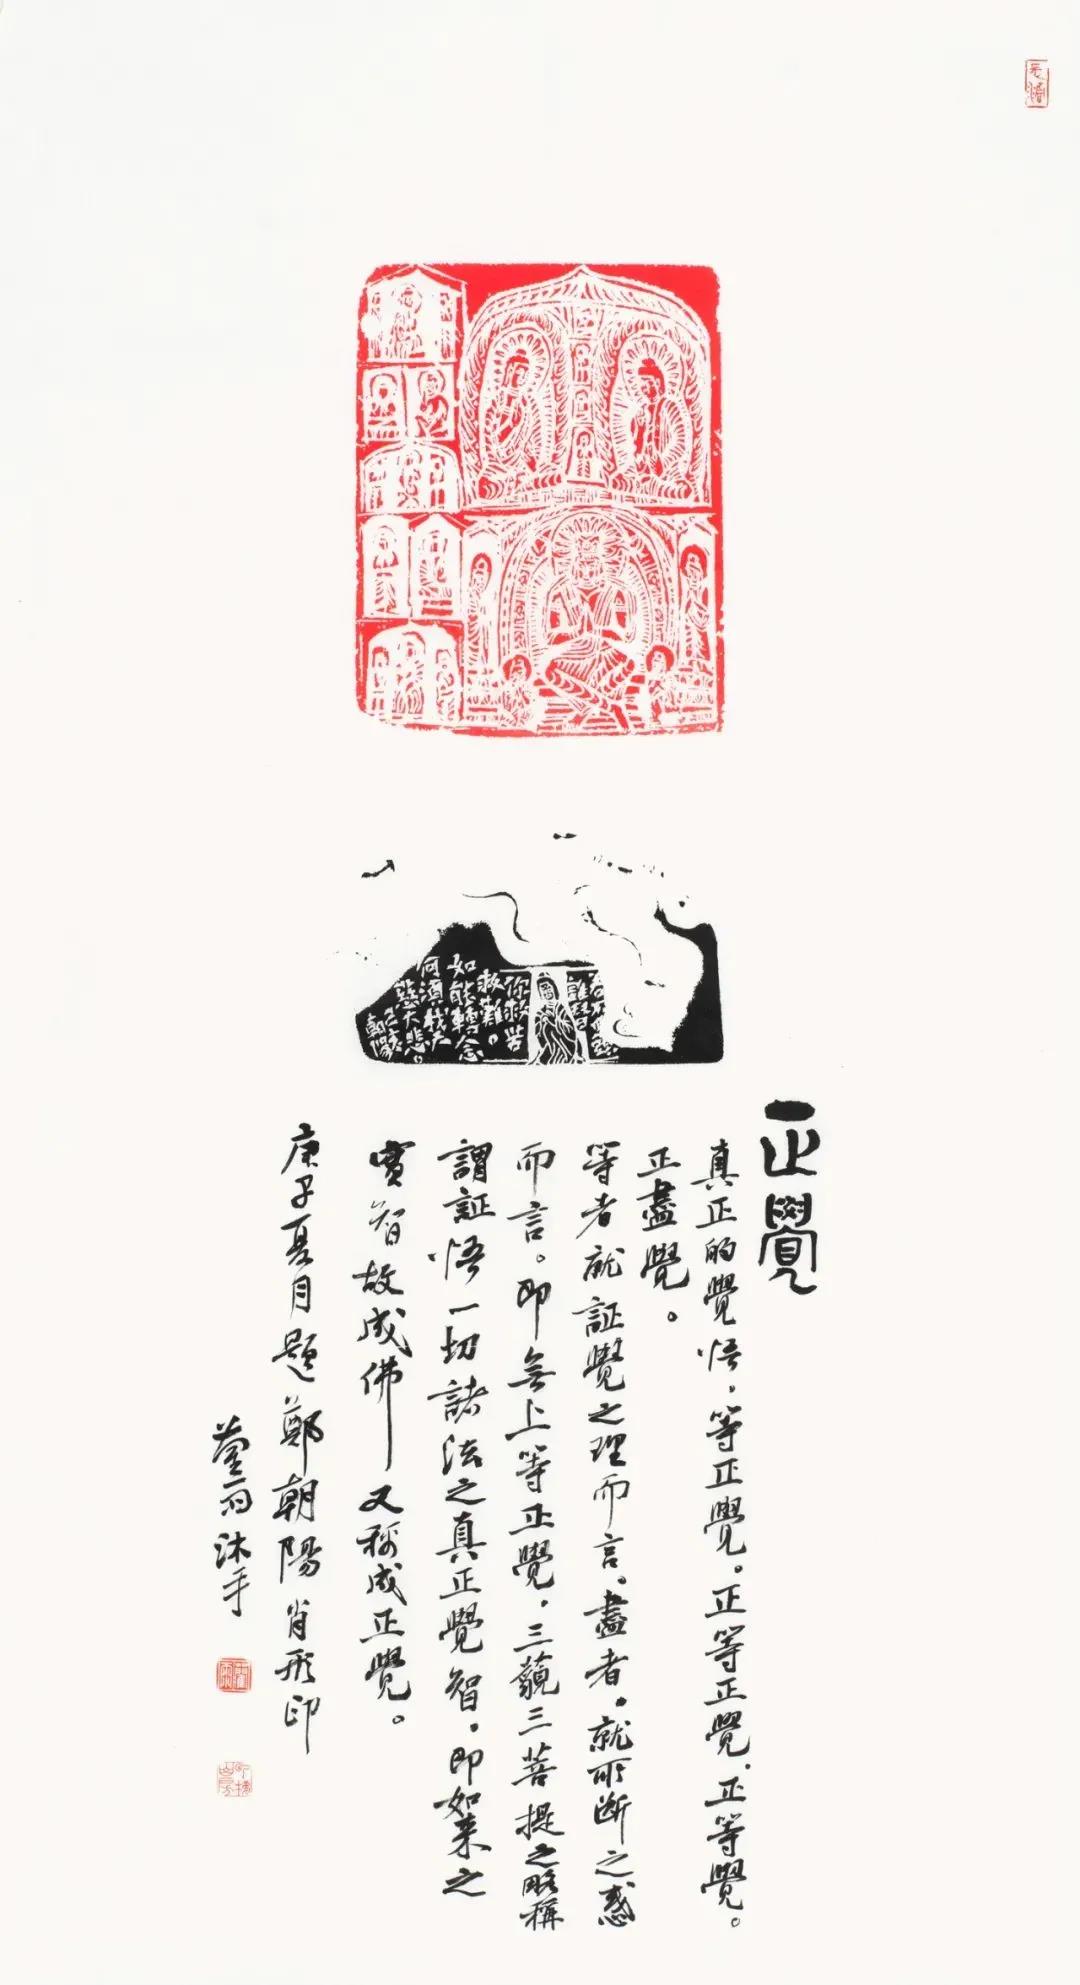 正覺
真正的覺悟，等正覺。正等正覺、正等覺。
正盡覺。
等者就証覺之理而言。盡者。就所斷之惑
而言。即無上等正覺，三藐三菩提之略稱
謂証悟一切諸法之真正覺智。即如來之
實智故成佛又稱成正覺。
庚子夏月題鄭朝陽肖形印
沐手
你救苦
救難。
如能轉念
何須我大
慈大悲。